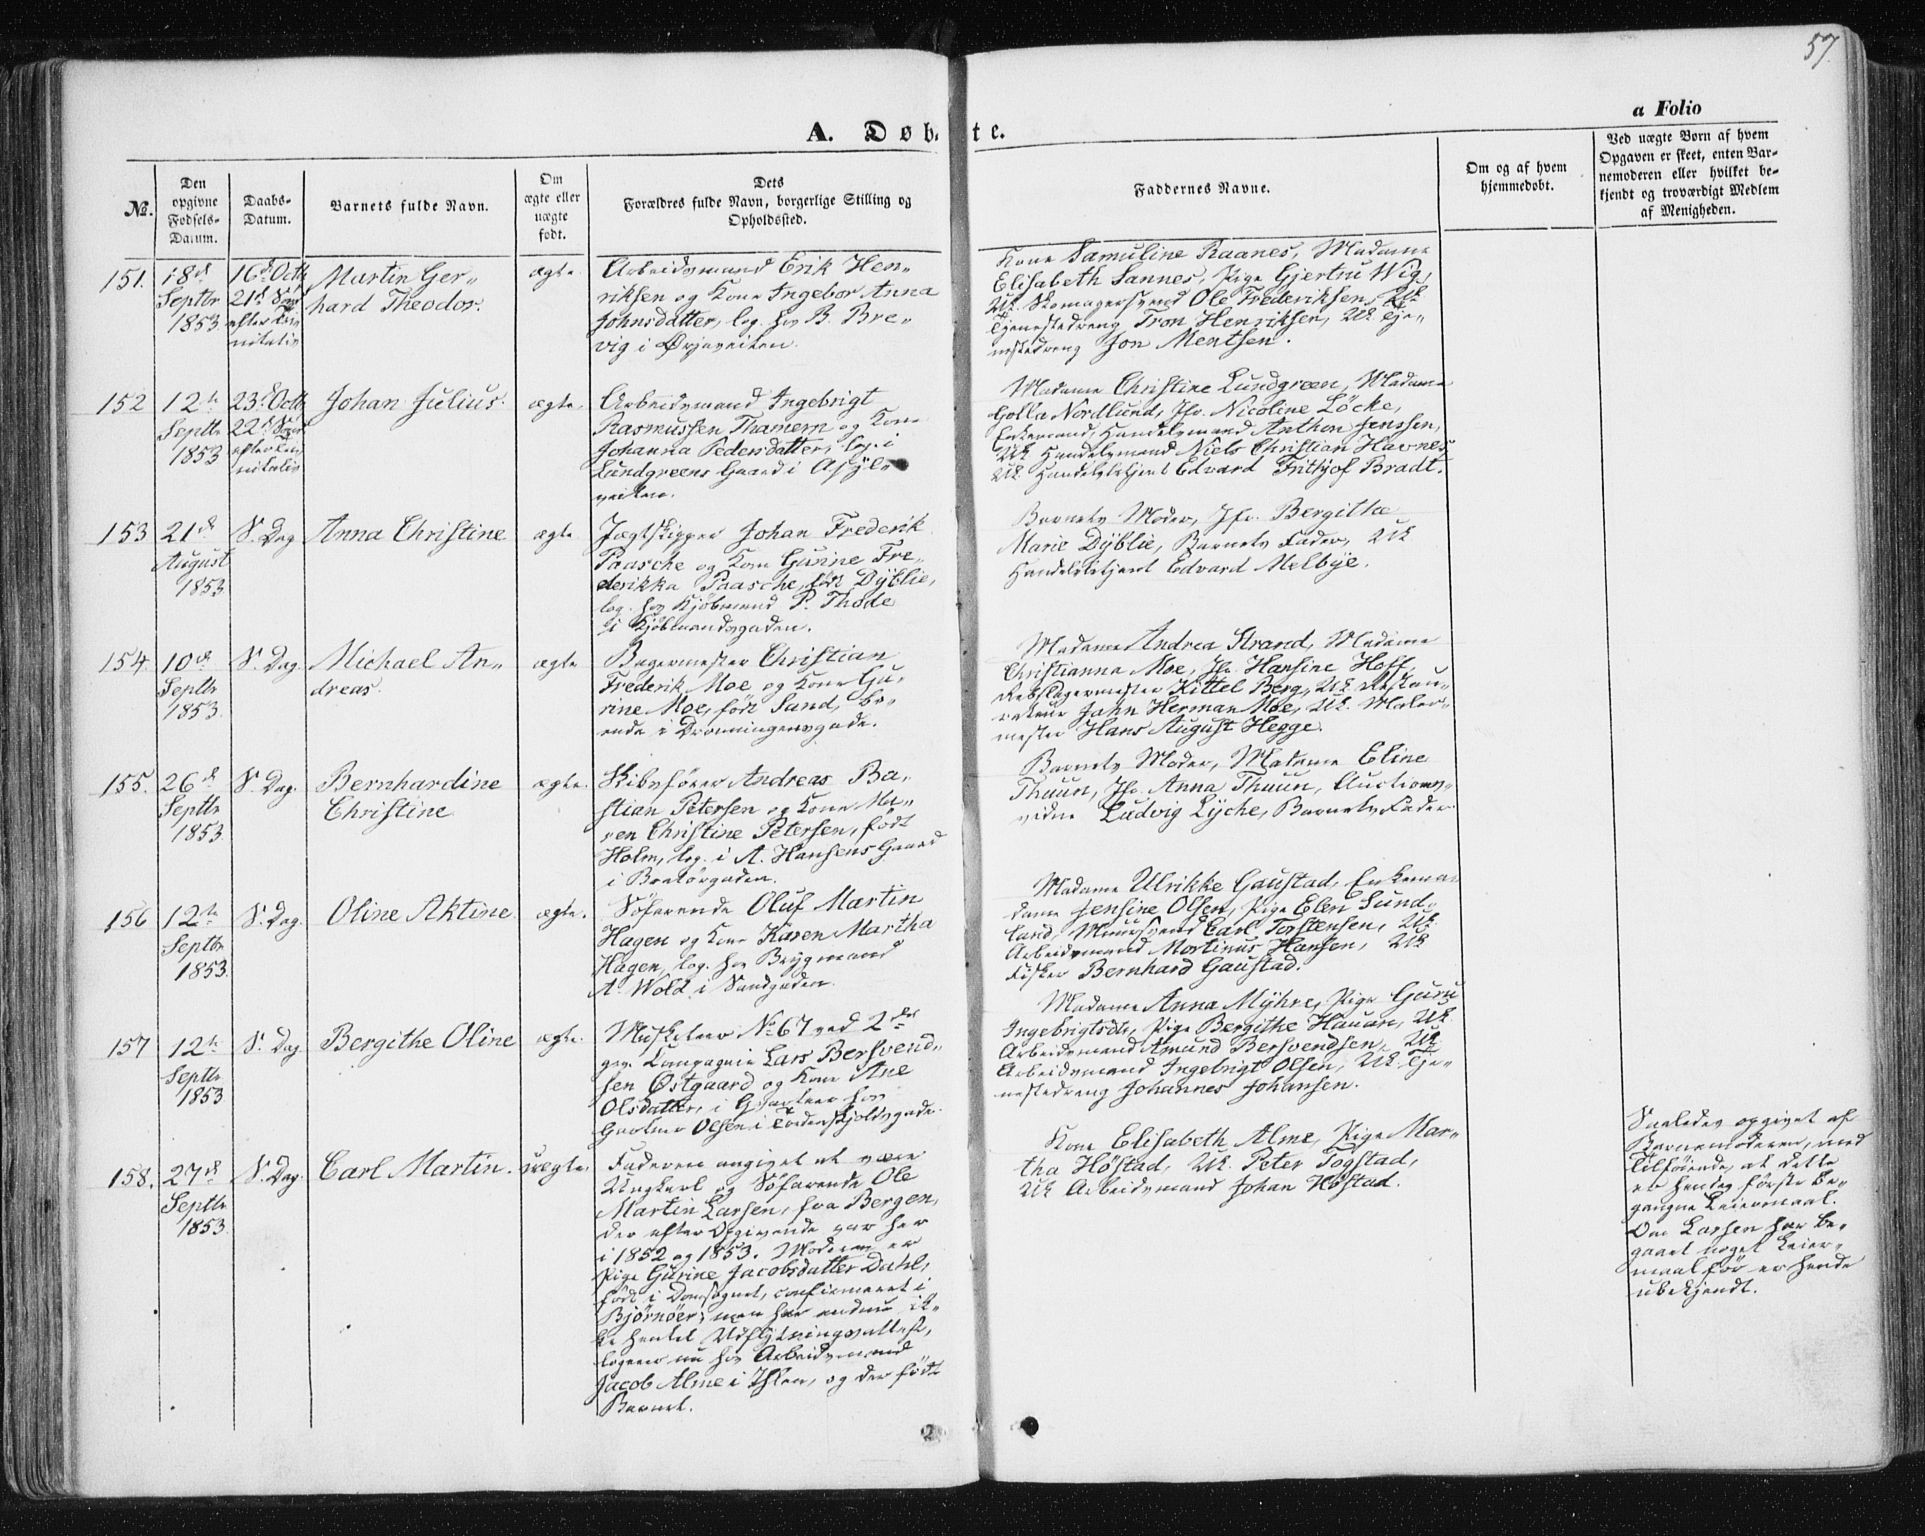 57.
a Folio
A. Døbte.
№.
Den opgivne Fødsels-Datum.
Daabs-Datum.
Barnets fulde Navn.
Om ægte eller uægte født.
Dets Forældres fulde Navn, borgerlige Stilling og Opholdssted.
Faddernes Navne.
Om og af hvem hjemmedøbt.
Ved uægte Børn af hvem Opgaven er skeet, enten Barnemoderen eller hvilket bekjendt og troværdigt Medlem af Menigheden.
151.
18d
Septbr
1853
16d Octb
21d Søn
efter Tri
nitatis
Martin Ger-
hard Theodor.
ægte
Arbeidsmand Erik Hen-
riksen og Kone Ingebor Anna
Johnsdatter, log. hos B. Bre-
vig i Ørjaveiten.
Kone Samuline Raanes, Madame
Elisabeth Sannes, Pige Gjertru Wig,
UK. Skomagersvend Ole Frederiksen, UK
Tjenestedreng Tron Henriksen, UK Tje-
nestedreng Jon Mentsen.
152
12te
Septbr
1853
23d Octb
22d Søn
efter Tri
nitatis
Johan Julius.
ægte.
Arbeidsmand Ingebrigt
Rasmussen Thamern og Kone
Johanna Pedersdatter, log. i
Lundgreens Gaard i Apsyl-
veiten.
Madame Christine Lundgreen, Madame
Golla Nordlund, Jfr. Nicoline Löcke,
Enkemand, Handelsmand Anthon Jenssen,
UK Handelsmand Niels Christian Havnes,
UK. Handelsbetjent Edvard Frithjof Bradt.
153
21d
August
1853
S. Dag
Anna Christine
ægte
Jægtskipper Johan Frederik
Paasche og Kone Gurine Fre-
derikka Paasche, født Dÿblie,
log. hos Kjöbmand P. Thode
i Kjöbmandsgaden.
Barnets Moder, Jfr. Bergithe
Marie Dÿblie, Barnets Fader, UK
Handelsbetjent Edvard Melbÿe.
154.
10d
Septbr
1853
S. Dag
Michael An-
dreas.
ægte
Bagermester Christian
Frederik Moe og Kone Gu-
rine Moe, født Sand, bo-
ende i Dronningensgade.
Madame Andrea Strand, Madame
Christianna Moe, Jfr. Hansine Hoff,
Rebslagermester Kittel Berg, UK Restau-
rateur John Herman Moe, UK. Maler-
mester Hans August Hegge.
155.
26d
Septbr
1853
S. Dag.
Bernhardine
Christine
ægte.
Skibsfører Andreas Ba-
stian Petersen og Kone Ma-
ren Christine Petersen, født
Holm, log. i A. Hansens Gaard
i Bratørgaden.
Barnets Moder, Madame Eline
Thuun, Jfr. Anna Thuun, Auctions-
vidne Ludvig Lÿche, Barnets Fader.
156
12te
Septbr
1853.
S. Dag.
Oline Aktine
ægte.
Søfarende Oluf Martin
Hagen og Kone Karen Martha
Hagen, log. hos Brygmand
A. Wold i Sandgaden.
Madame Ulrikke Gaustad, Enkema-
dame Jensine Olsen, Pige Elen Sund-
land, Muursvend Carl Torstensen, UK
Arbeidsmand Mortinus Hansen, UK
Fisker Bernhard Gaustad.
157
12te
Septbr
1853
S. Dag
Bergithe Oline
ægte.
Musketeer No 67 ved 2det
gev. Compagnie Lars Bersvend-
sen Østgaard og Kone Ane
Olsdatter, i Qvarteer hos
Gartner Olsen i Tordenskjoldsgade.
Madame Anna Mÿhre, Pige Guru
Ingebrigtsdtr, Pige Bergithe Hauan, UK
Arbeidsmand Amund Bersvendsen, UK
Arbeidsmand Ingebrigt Olsen, UK. Tje-
nestedreng Johannes Johansen.
158.
27d
Septbr
1853
S. Dag.
Carl Martin.
uægte.
Faderen angivet at være
Ungkarl og Søfarende Ole
Martin Larsen, fra Bergen,
der efter Opgivende var her
i 1852 og 1853. Moderen er
Pige Gurine Jacobsdatter Dahl,
født i Domsognet, confirmeret i
Bjørnøer; men har endnu ik-
ke hentet Udflytningsattest,
logerer nu hos Arbeidsmand
Jacob Alme i Ihlen, og der født
Barnet.
Kone Elisabeth Alme, Pige Mar-
tha Høstad, UK. Peter Togstad,
UK Arbeidsmand Johan Høstad.
Saaledes opgivet af
Barnemoderen, med
Tilføiende, at dette
er hendes første be-
gangne Leiermaal.
Om Larsen har be-
gaaet noget Leier-
maal før er hende
ubekjendt.